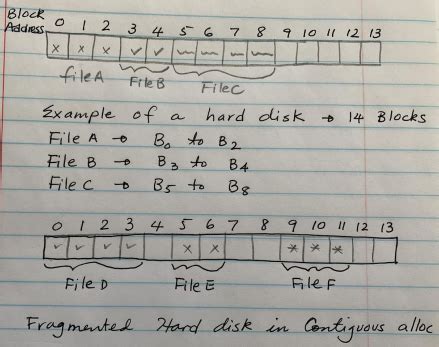 Block
Address 0 1 2 3 4 5 6 7 8 9 10 11 12 13
x x x ✓ ✓ ~ ~ ~ ~
file A File B File C
Example of a hard disk → 14 Blocks
File A → B₀ to B₂
File B → B₃ to B₄
File C → B₅ to B₈
0 1 2 3 4 5 6 7 8 9 10 11 12 13
✓ ✓ ✓ ✓ x x * * *
File D File E File F
Fragmented Hard disk in Contiguous alloc